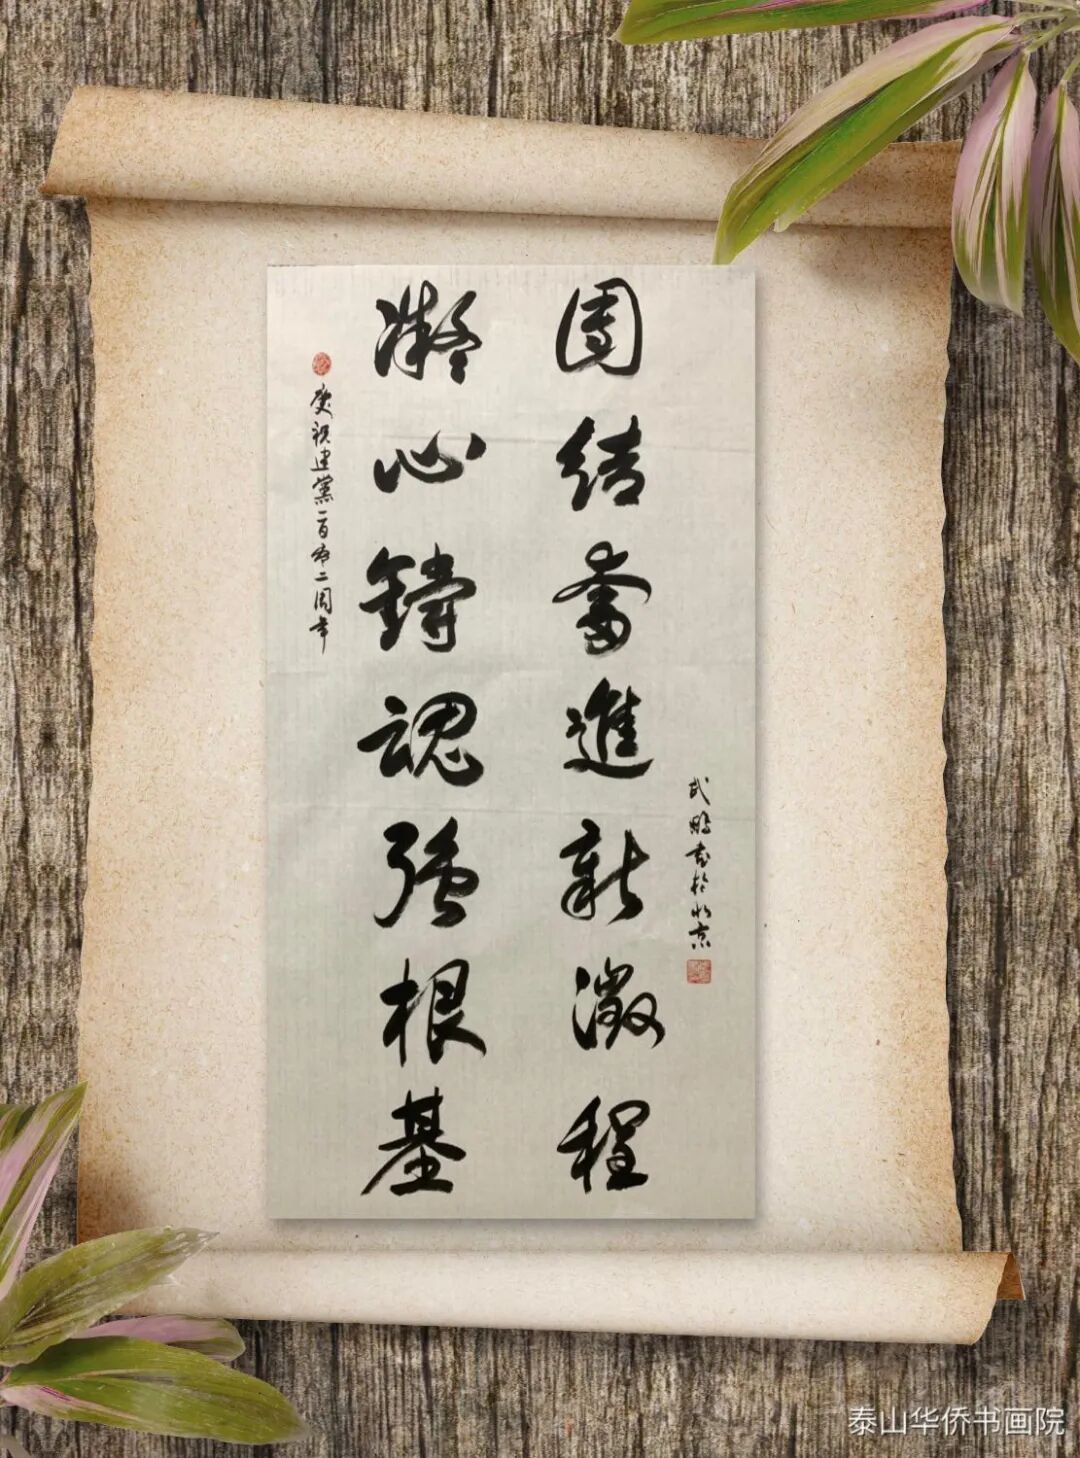 慶祝建黨一百零二周年
凝心鑄魂強根基
團結奮進新徵程
武鵬書於北京
泰山华侨书画院